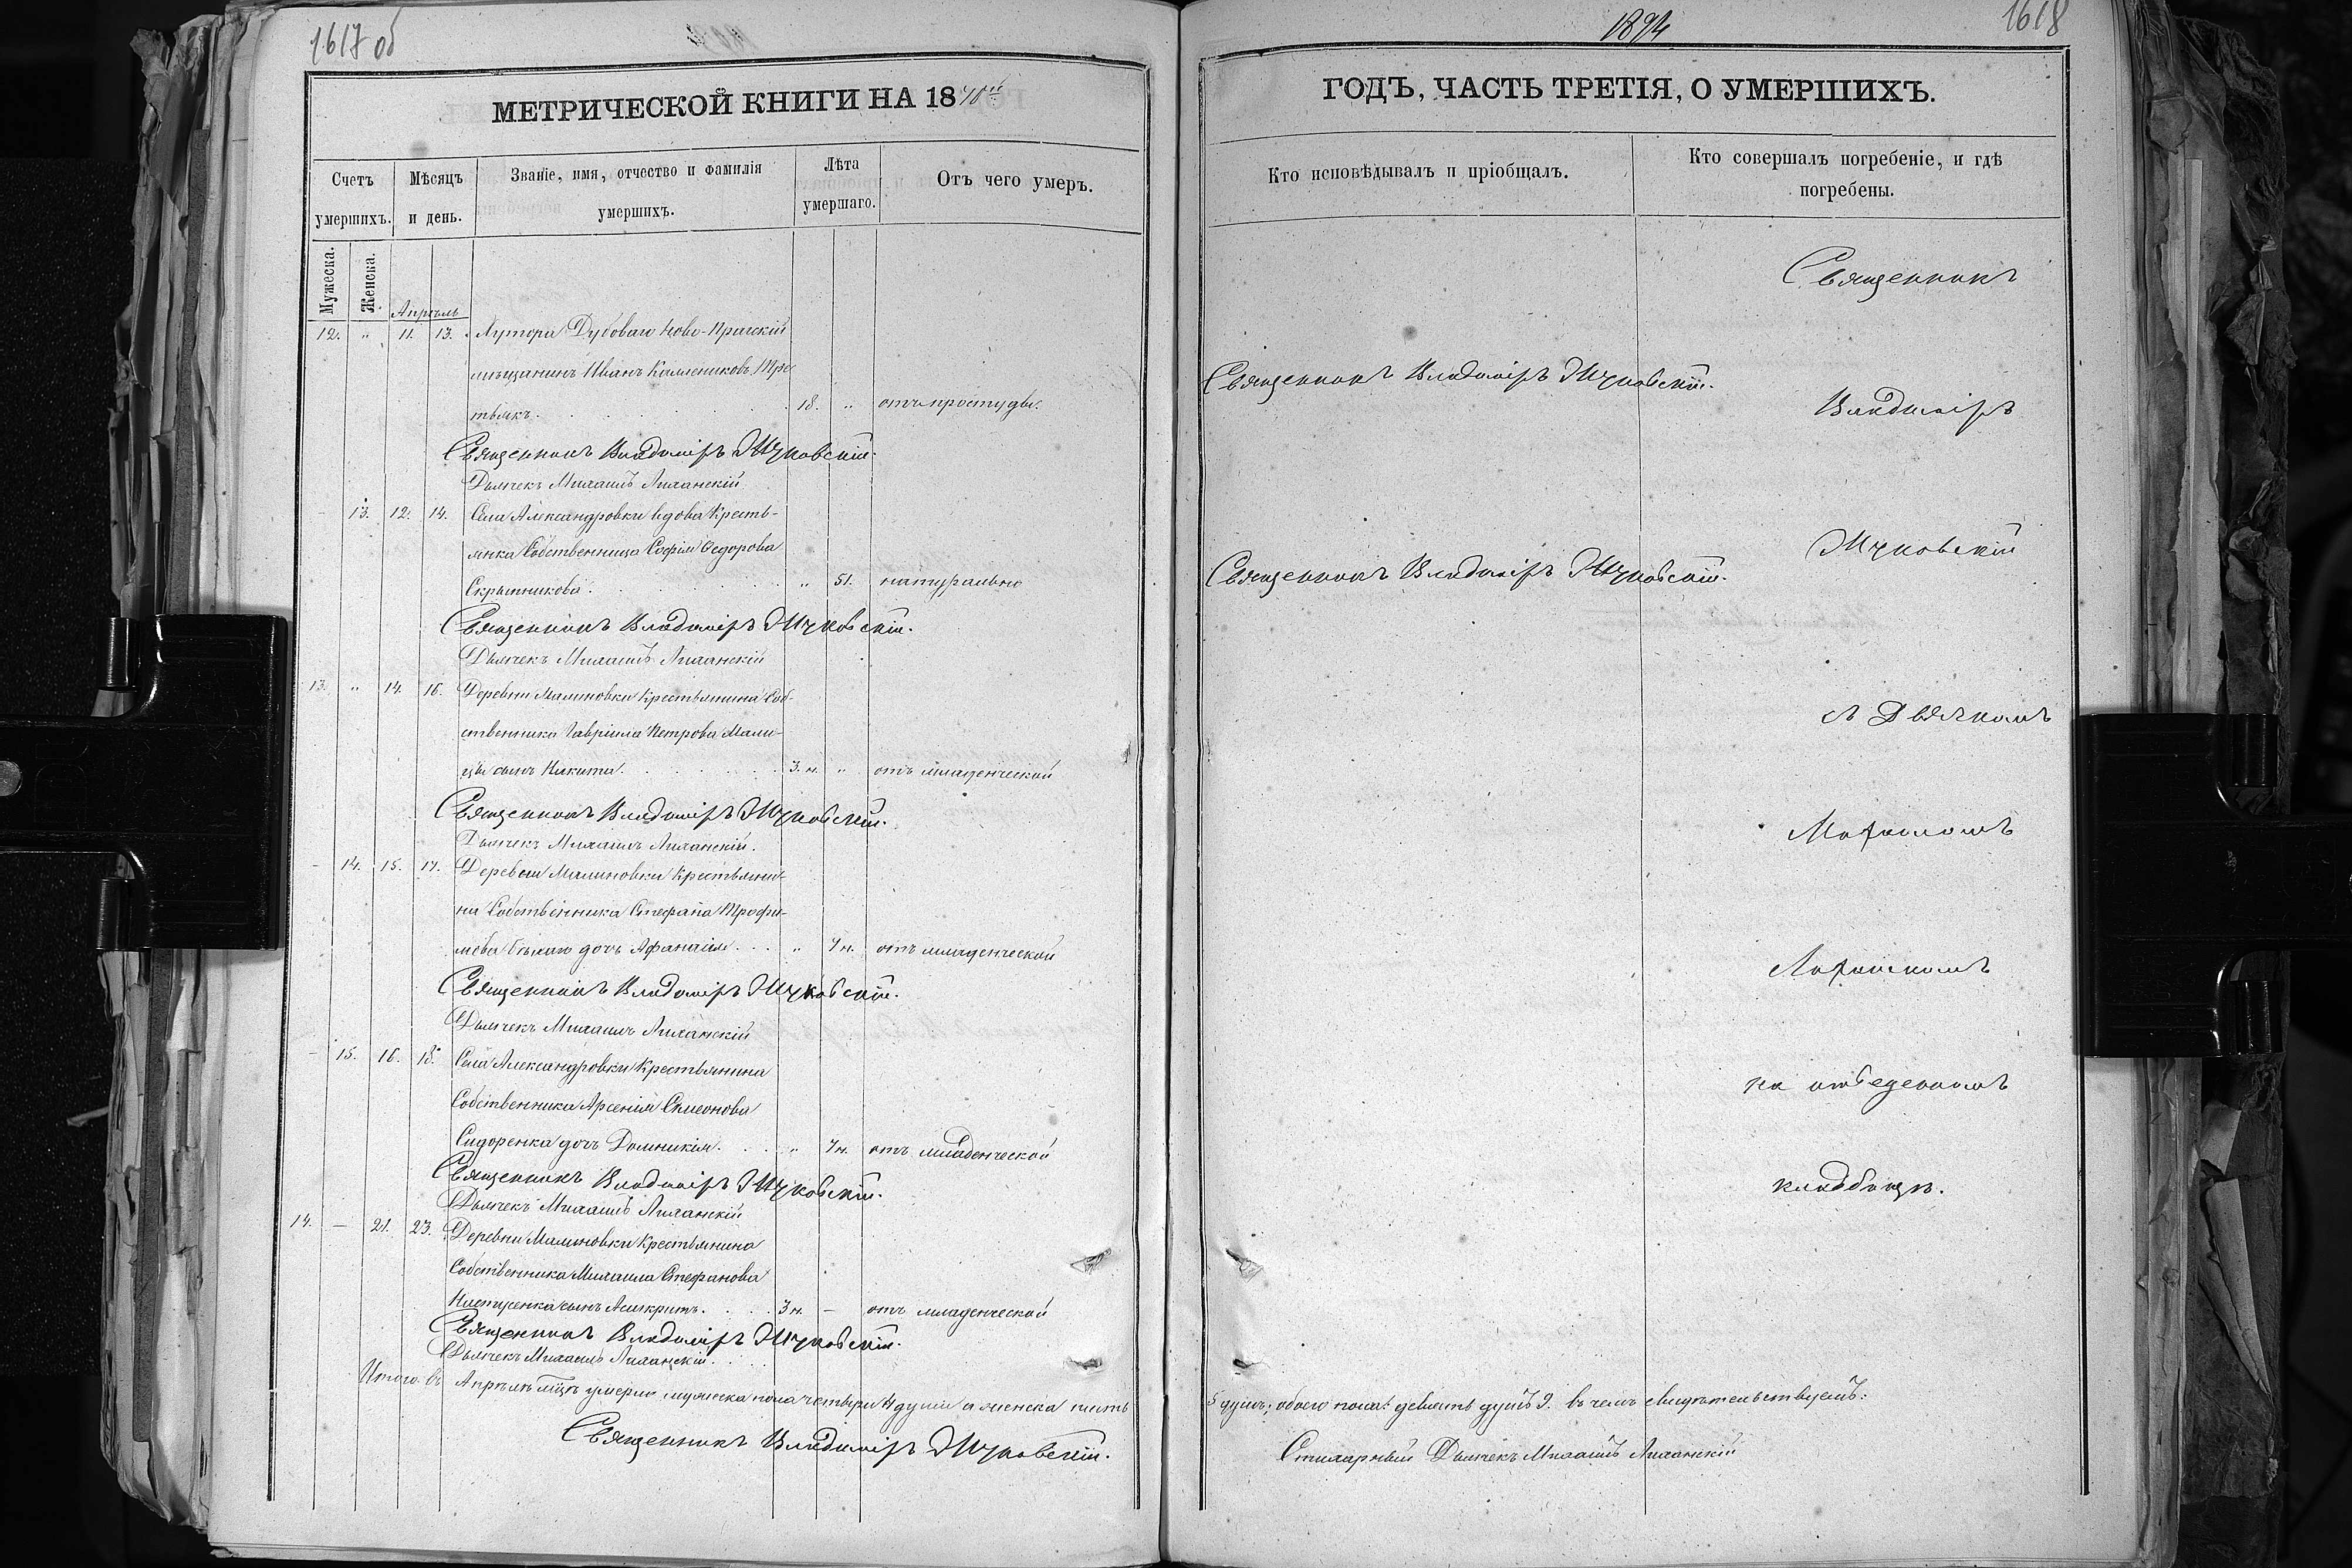 1617 об
МЕТРИЧЕСКОЙ КНИГИ НА 1870й
Счетъ умершихъ.
Мѣсяцъ и день.
Званіе, имя, отчество и фамилія умершихъ.
Лѣта умершаго.
Отъ чего умеръ.
Мужеска.
Женска.
Апрѣль
12. " 11. 13. Хутора Дубоваго Ново-Прагскій
мѣщанинъ Иванъ Калениковъ Тре
тьякъ. 18. " отъ простуды.
Священникъ Владиміръ Жуковскій.
Дьячекъ Михаилъ Лиханскій
- 13. 12. 14. Села Александровки вдова Кресть-
янка Собственница Софія Ѳедорова
Скрынникова. " 51. натурально
Священникъ Владиміръ Жуковскій.
Дьячекъ Михаилъ Лиханскій
13. " 14. 16. Деревни Малиновки Крестьянина Соб-
ственника Гавріила Петрова Мали-
цы сынъ Никита. 3. н. " отъ младенческой
Священникъ Владиміръ Жуковскій.
Дьячекъ Михаилъ Лиханскій.
- 14. 15. 17. Деревни Малиновки Крестьяни-
на Собственника Стефана Трофи-
мова дочь Афанасія. " 7 н. отъ младенческой
Священникъ Владиміръ Жуковскій.
Дьячекъ Михаилъ Лиханскій
- 15. 16. 18. Села Александровки Крестьянина
Собственника Арсенія Симеонова
Сидоренка дочь Домникія. " 7 н. отъ младенческой
Священникъ Владиміръ Жуковскій.
Дьячекъ Михаилъ Лиханскій
14. — 21. 23. Деревни Малиновки Крестьянина
Собственника Михаила Стефанова
сынъ Асигкритъ. 3 н. - отъ младенческой
Священникъ Владиміръ Жуковскій.
Дьячекъ Михаилъ Лиханскій.
Итого въ Апрѣлѣ мцѣ умерло мужеска пола четыри 4 души а женска пять
Священникъ Владиміръ Жуковскій.
1894
1618
ГОДЪ, ЧАСТЬ ТРЕТІЯ, О УМЕРШИХЪ.
Кто исповѣдывалъ и пріобщалъ.
Кто совершалъ погребеніе, и гдѣ погребены.
Священникъ Владиміръ Жуковскій.
Священникъ Владиміръ Жуковскій.
Священникъ
Владиміръ
Жуковскій
съ Дьячкомъ
Михаиломъ
Лиханскимъ
на отведенномъ
кладбищѣ.
5 душъ; обоего пола: девять душъ 9. въ чемъ свидѣтельствуемъ:
Стихарный Дьячекъ Михаилъ Лиханскій